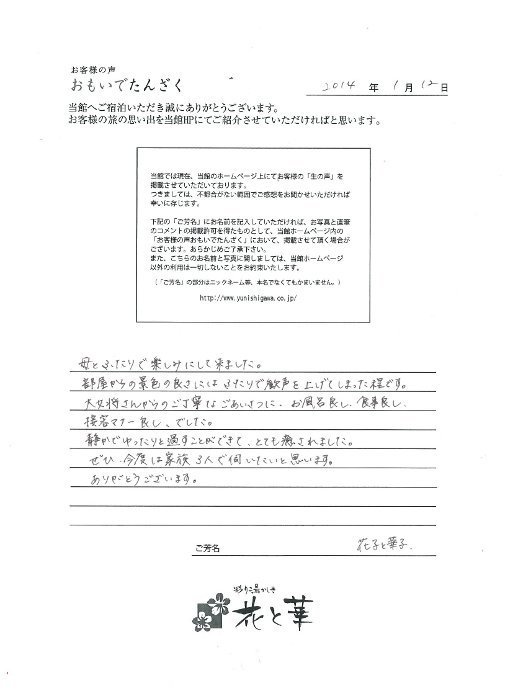 お客様の声
おもいでたんざく
2014 年 1 月 12 日
当館へご宿泊いただき誠にありがとうございます。
お客様の旅の思い出を当館HPにてご紹介させていただければと思います。
当館では現在、当館のホームページ上にてお客様の「生の声」を
掲載させていただいております。
つきましては、不都合がない範囲でご感想をお聞かせいただければ
幸いに存じます。
下記の「ご芳名」にお名前を記入していただければ、お写真と直筆
のコメントの掲載許可を得たものとして、当館ホームページ内の
「お客様の声おもいでたんざく」において、掲載させて頂く場合が
ございます。あらかじめご了承下さい。
また、こちらのお名前と写真に関しましては、当館ホームページ
以外の利用は一切しないことをお約束いたします。
(「ご芳名」の部分はニックネーム等、本名でなくてもかまいません。)
http://www.yunishigawa.co.jp/
母とふたりで楽しみにして来ました。
部屋からの景色の良さにはふたりで歓声を上げてしまった程です。
大女将さんからのご丁寧なごあいさつに、お風呂良し、食事良し、
接客マナー良し、でした。
静かでゆったりと過すことができて、とても癒されました。
ぜひ、今度は家族3人で伺いたいと思います。
ありがとうございます。
ご芳名 花子と華子.
彩り湯かしき
花と華